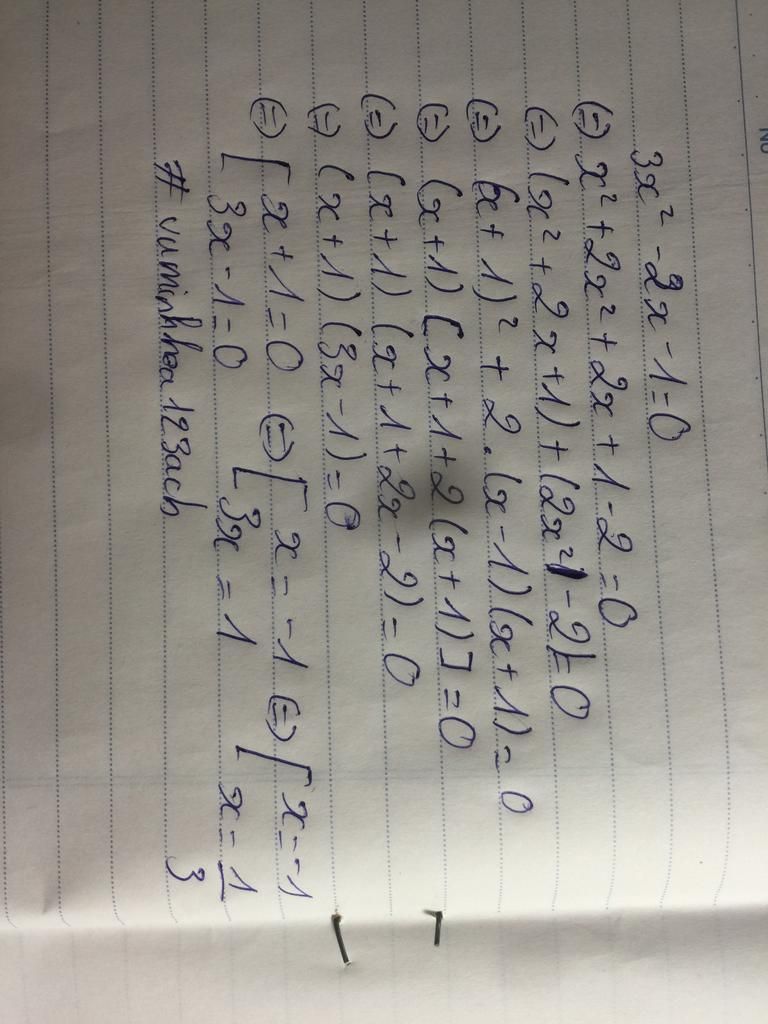 No
3x² - 2x - 1 = 0
(=) x² + 2x² + 2x + 1 - 2 = 0
(=) (x² + 2x + 1) + (2x² - 2) = 0
(=) (x + 1)² + 2.(x - 1)(x + 1) = 0
(=) (x + 1) [x + 1 + 2(x + 1)] = 0
(=) (x + 1) (x + 1 + 2x - 2) = 0
(=) (x + 1) (3x - 1) = 0
(=) [ x + 1 = 0 (=) [ x = -1 (=) [ x = -1
3x - 1 = 0 3x = 1 x = 1/3
# vuminhhoa123ach